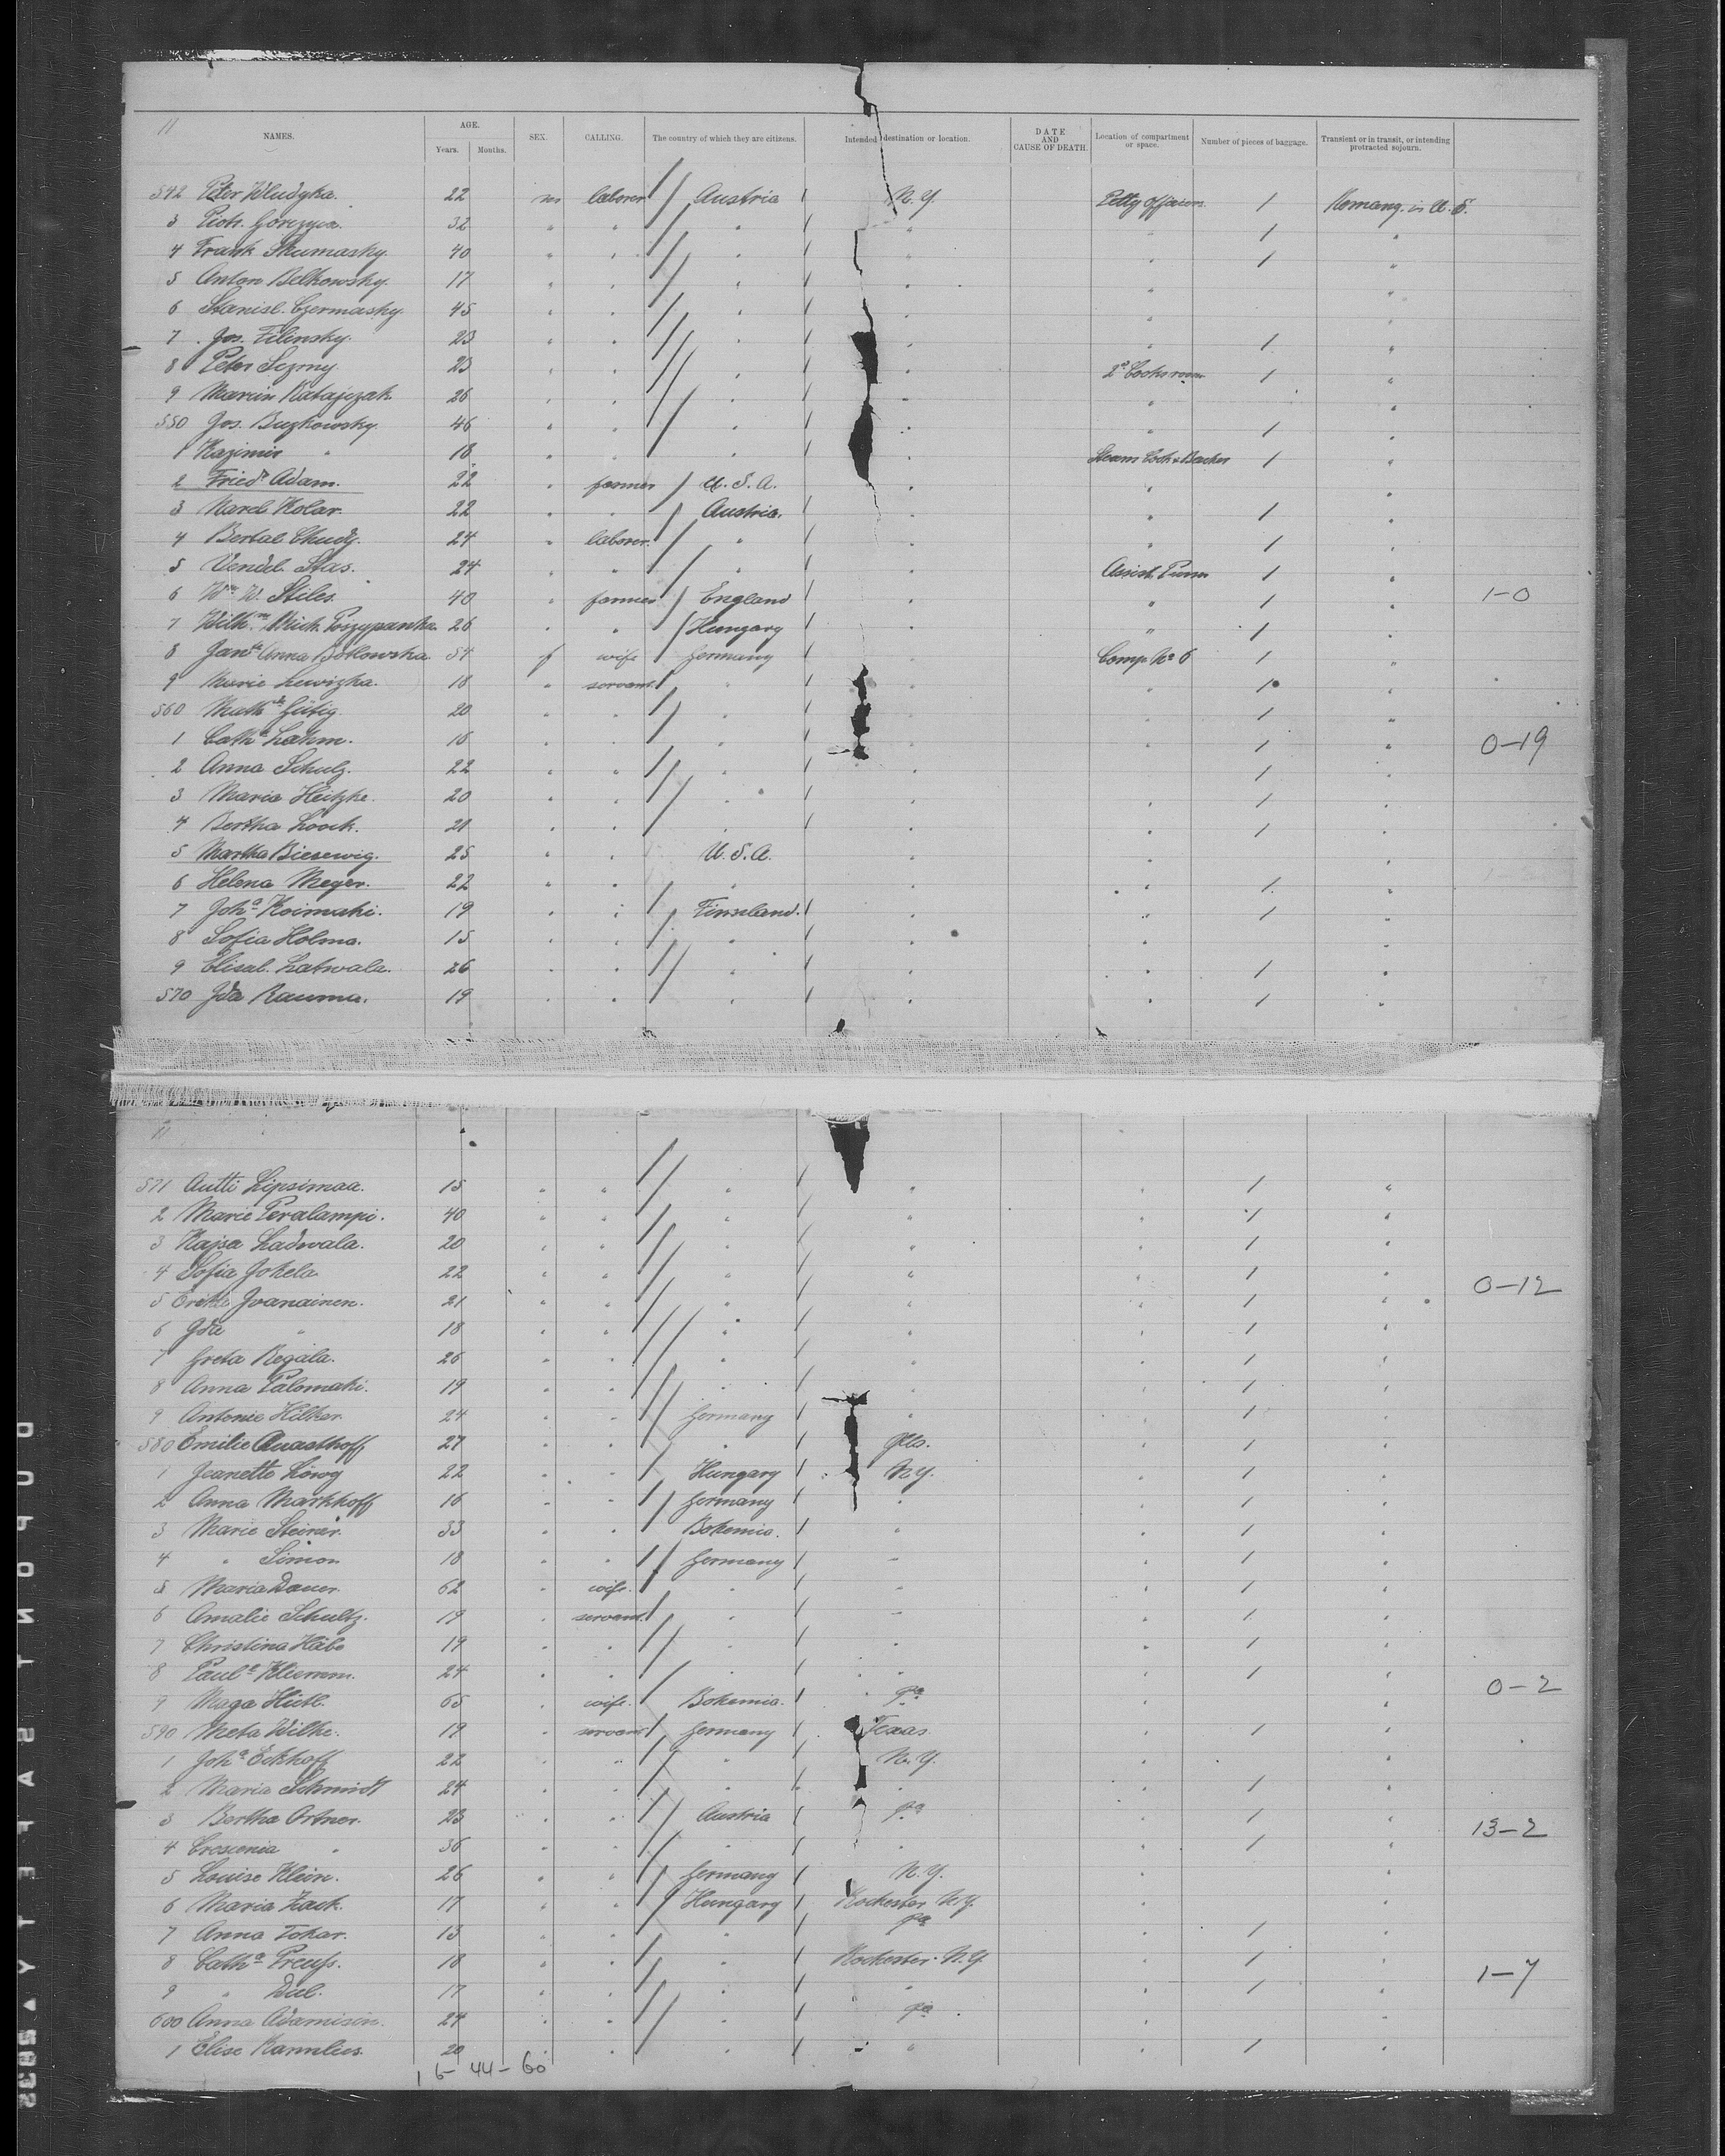 11
NAMES. AGE. SEX. CALLING. The country of which they are citizens. Intended destination or location. DATE AND CAUSE OF DEATH. Location of compartment or space. Number of pieces of baggage. Transient or in transit, or intending protracted sojourn.
Years. Months.
542 Peter Wludyka. 22 m laborer Austria N. Y. 1
3 Piotr. Gorczyca. 32 " " " " " 1 "
4 Frank Skumasky. 40 " " " " " 1 "
5 Anton Belkowsky. 17 " " " " " "
6 Stanisl. Czermasky. 45 " " " " " "
7 Jos. Filinsky. 23 " " " " " 1 "
8 Peter Sczrny. 23 " " " " 2d Cooks room 1 "
9 Marcin Ratajczak 26 " " " " " "
550 Jos. Buzkowsky 46 " " " " " 1 "
1 Kazimir " 18 " " " " 1 "
2 Friedr. Adam. 22 " farmer U. S. A. " " "
3 Karel Kolar. 22 " " Austria. " " 1 "
4 Bertal Chudy. 24 " laborer. " " " 1 "
5 Vendel. Stas. 24 " " " " 1 "
6 Wm. W. Stiles. 40 " farmer England " " 1 " 1-0
7 Wilhm. 26 " " Hungary " " 1 "
8 Anna f wife Germany " Comp No 6 1 "
9 Marie Lewizka. 18 " servant " " " 1 "
560 20 " " " " " 1 "
1 Catha Lahm. 16 " " " " " 1 " 0-19
2 Anna Schulz. 22 " " " " 1 "
3 Maria Heitzke. 20 " " " " " 1 "
4 Bertha Loock. 21 " " " " " 1 "
5 Martha Biesewig. 25 " " U. S. A. " " "
6 Helena Meyer. 22 " " " " " 1 "
7 Joha Koimaki. 19 " " Finnland. " " 1 "
8 Sofia Holma. 15 " " " " " "
9 Elisab. Latwala. 26 " " " " " 1 "
570 Ida Rauma. 19 " " " " " 1 "
11
571 Autti Lipsimaa. 15 " " " " " 1 "
2 Marie Peralampi. 40 " " " " " 1 "
3 Kajsa Ladwala. 20 " " " " " 1 "
4 Sofia Jokela. 22 " " " " " 1 " 0-12
5 Ivanainen. 21 " " " " " 1 "
6 Ida " 18 " " " " " 1 "
7 Greta Regala. 26 " " " " " 1 "
8 Anna Palomaki. 19 " " " " " 1 "
9 Antonie Hilker. 24 " " Germany " " 1 "
580 Emilie Quasthoff 27 " " " " 1 "
1 Jeanette Löwy 22 " " Hungary N.Y. " 1 "
2 Anna Markhoff 16 " " Germany " " 1 "
3 Marie Steiner. 33 " " Bohemia. " " 1 "
4 " Simon 18 " " Germany " " 1 "
5 Maria Dauer. 62 " wife. " " " 1 "
6 Amalie Schultz. 19 " servant. " " " 1 "
7 Christina Häbe 19 " " " " " 1 "
8 Paula Klumm. 24 " " " " " 1 "
9 65 " wife. Bohemia. Pa " " 0-2
590 Meta Wilke. 19 " servant Germany Texas " 1 "
1 Joha Eckhoff 22 " " " N. Y. " "
2 Maria Schmidt 24 " " " " " 1 "
3 Bertha Ortner. 23 " " Austria Pa " 1 " 13-2
4 Crescenia " 36 " " " " " 1 "
5 Louise Klein. 26 " " Germany N. Y. " "
6 Maria Zack. 17 " " Hungary Rochester N.Y. " "
7 Anna Tokar. 13 " " " Pa " 1 "
8 Catha Preuss. 18 " " " Rochester N.Y. " 1 " 1-7
9 " 17 " " " " " 1 "
600 Anna Adamisin. 24 " " " Pa " "
1 Elise 20 " " " " " 1 "
16-44-60